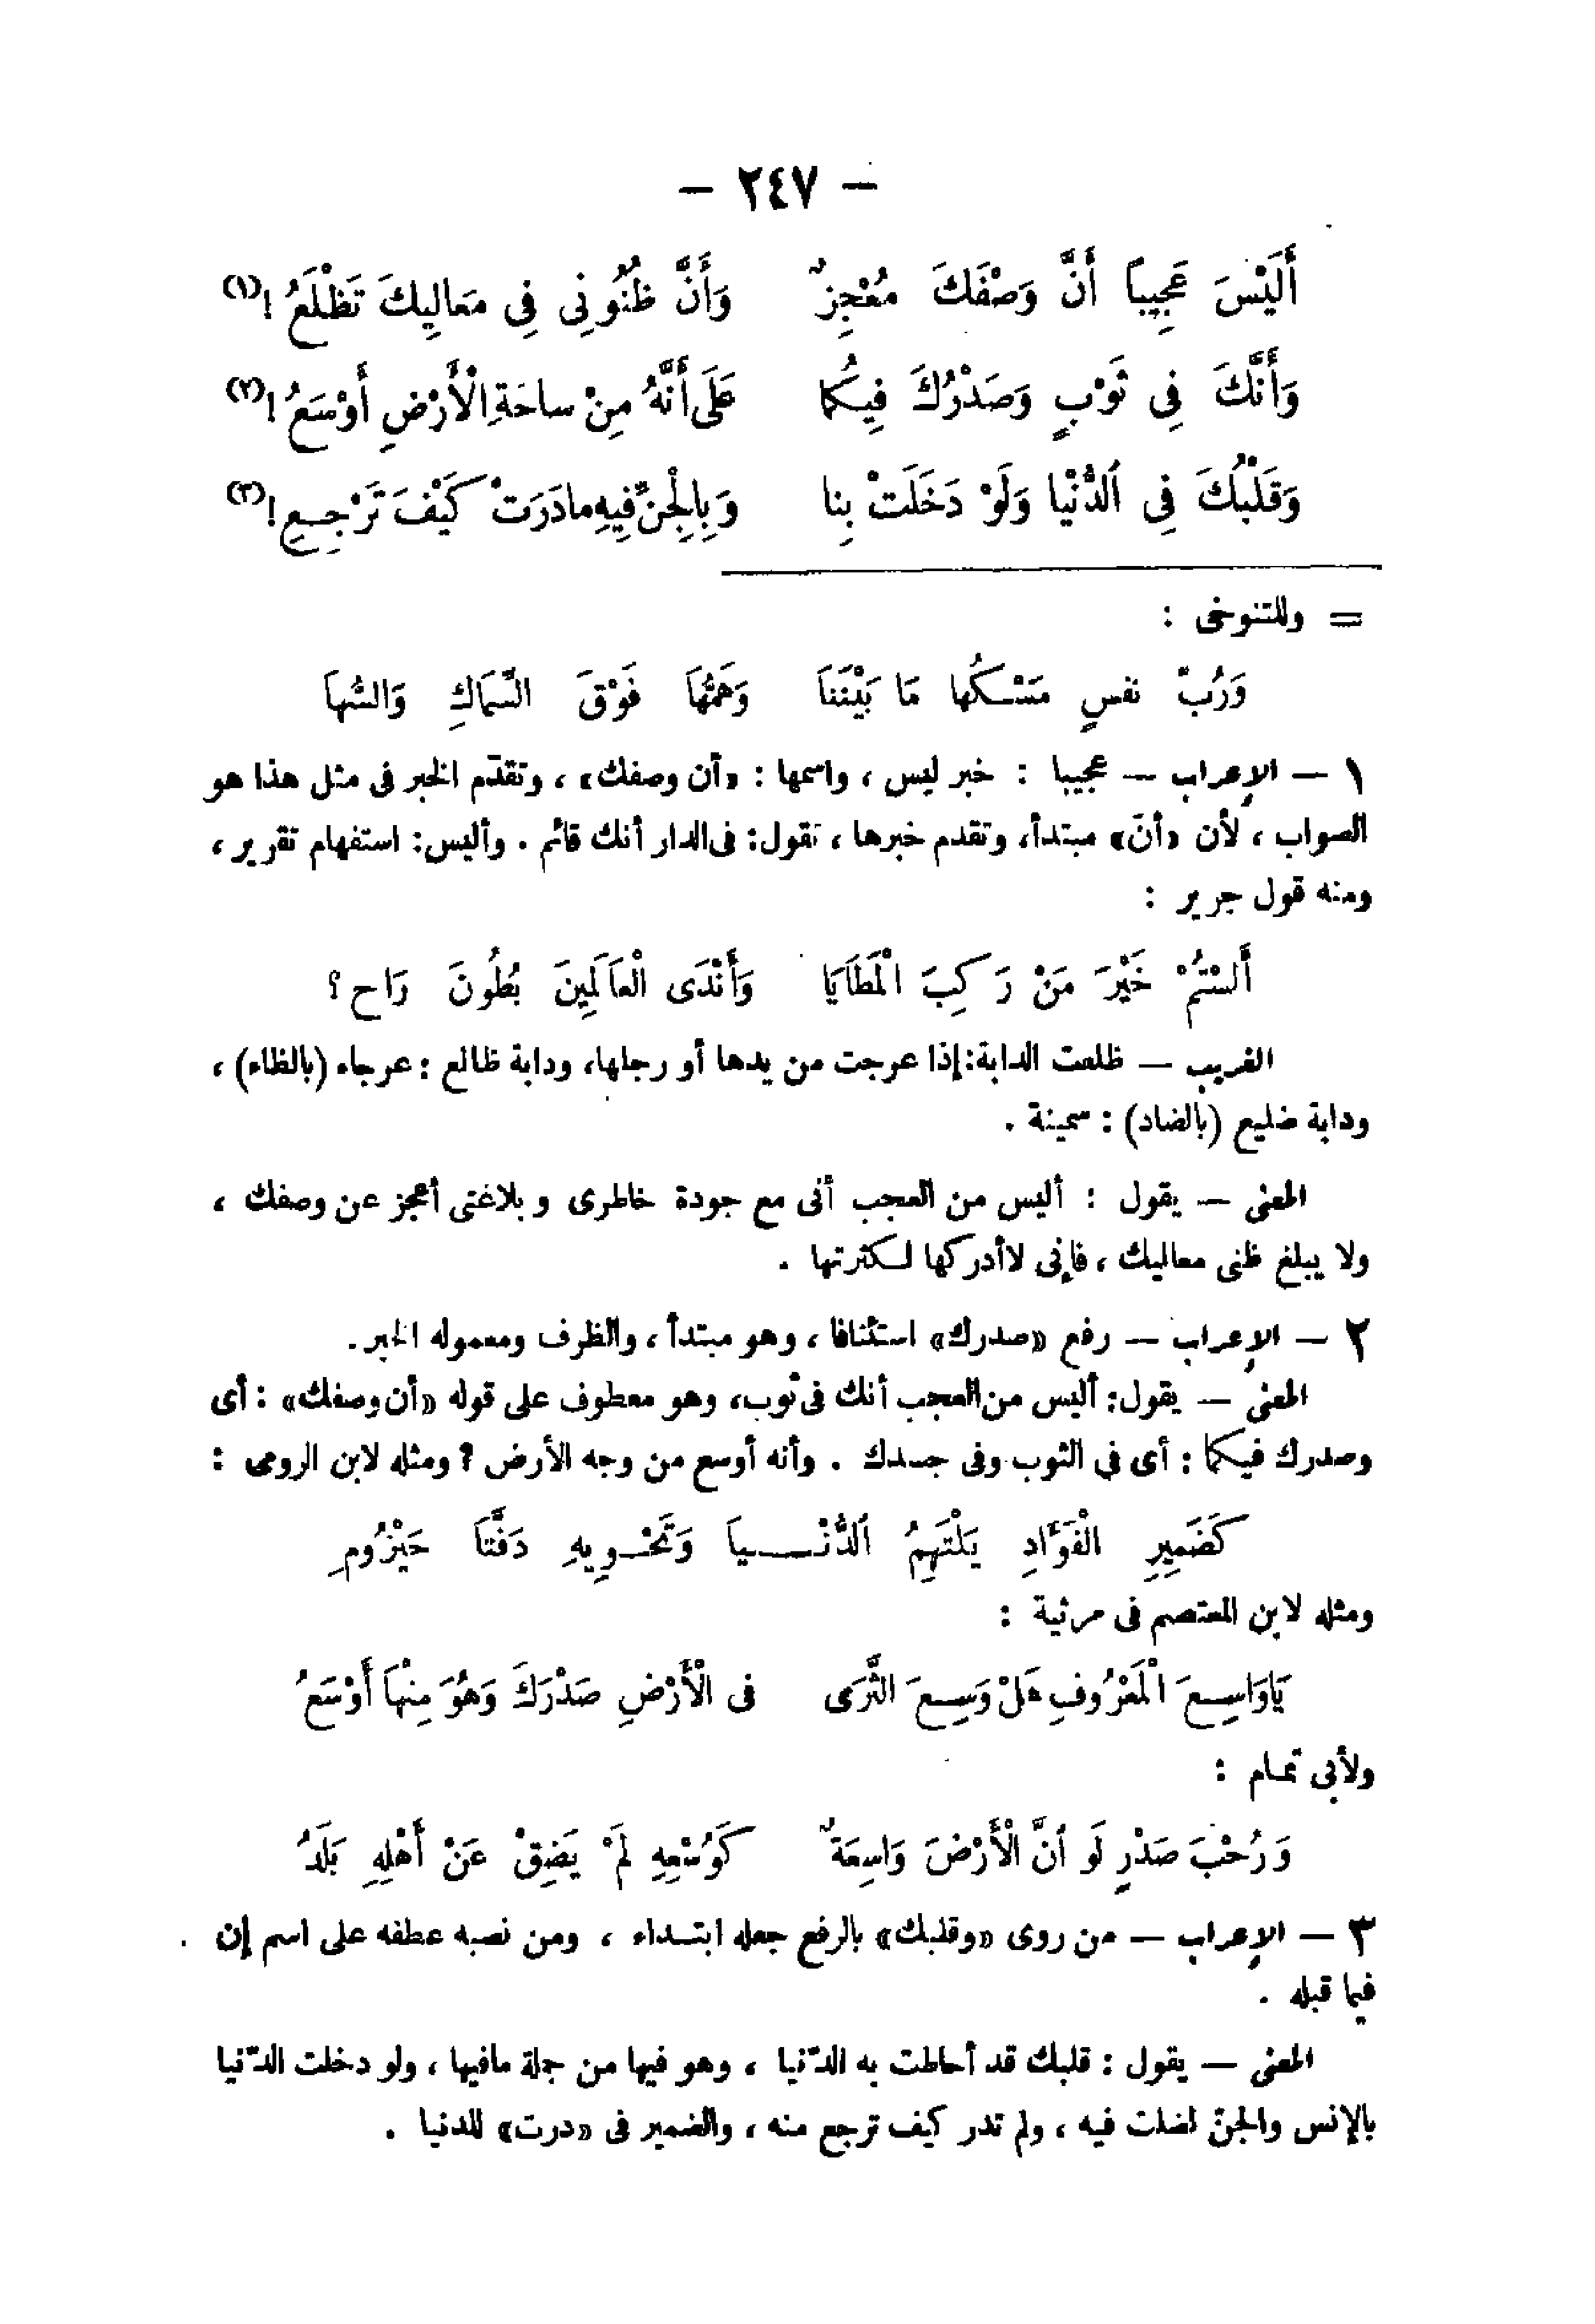 — ٢٤٧ —
أَلَيْسَ عَجِيباً أَنَّ وَصْفَكَ مُعْجِزٌ وَأَنَّ ظُنُونِى فِى مَعَالِيكَ تَظْلَعُ !(١)
وَأَنَّكَ فِى ثَوْبٍ وَصَدْرُكَ فِيكُما عَلَى أَنَّهُ مِنْ ساحَةِ الْأَرْضِ أَوْسَعُ !(٢)
وَقَلْبُكَ فِى ٱلدُّنْيا وَلَوْ دَخَلَتْ بِنا وَبِالْجِنِّ فِيهِ مادَرَتْ كَيْفَ تَرْجِعِ !(٣)
= وللتنوخى :
وَرُبّ نفسٍ مَسْكُها مَا بَيْنَنَا وَهَمُّهَا فَوْقَ السِّمَاكِ وَالسُّهاَ
١ — الإعراب — عجيبا : خبر ليس ، واسمها : «أن وصفك» ، وتقدّم الخبر فى مثل هذا هو
الصواب ، لأن «أنّ» مبتدأ، وتقدم خبرها ، تقول: فى الدار أنك قائم . وأليس: استفهام تقرير ،
ومنه قول جرير :
أَلسْتُمْ خَيْرَ مَنْ رَكِبَ الْمَطَايَا وَأَنْدَى الْعاَلَمِينَ بُطُونَ رَاح ؟
الغريب — ظلعت الدابة: إذا عرجت من يدها أو رجلها، ودابة ظالع : عرجاء (بالظاء) ،
ودابة ضليع (بالضاد) : سمينة .
المعنى — يقول : أليس من العجب أنى مع جودة خاطرى وبلاغتى أعجز عن وصفك ،
ولا يبلغ ظنى معاليك ، فإنى لاأدركها لكثرتها .
٢ — الإعراب — رفع «صدرك» استئنافا ، وهو مبتدأ ، والظرف ومعموله الخبر.
المعنى — يقول: أليس من العجب أنك فى ثوب، وهو معطوف على قوله «أن وصفك» : أى
وصدرك فيكما : أى فى الثوب وفى جسدك . وأنه أوسع من وجه الأرض ؟ ومثله لابن الرومى :
كَضَمِيرِ الْفَوَّادِ يَلْتَهِمُ ٱلدُّنْـيا وَتَحْـوِيهِ دَفَّتاَ حَيْزُومِ
ومثله لابن المعتصم فى مرثية :
يَاوَاسِعَ الْمَعْرُوفِ هَلْ وَسِعَ الثَّرَى فى الْأَرْضِ صَدْرَكَ وَهُوَ مِنْهَا أَوْسَعُ
ولأبى تمام :
وَرُحْبَ صَدْرٍ لَو ٱنَّ الْأَرْضَ وَاسِعَةٌ كَوُسْعِهِ لَمْ يَضِقْ عَنْ أَهْلِهِ بَلَدُ
٣ — الإعراب — من روى «وقلبك» بالرفع جعله ابتداء ، ومن نصبه عطفه على اسم إن
فيما قبله .
المعنى — يقول : قلبك قد أحاطت به الدّنيا ، وهو فيها من جملة مافيها ، ولو دخلت الدّنيا
بالإنس والجنّ لضلت فيه ، ولم تدر كيف ترجع منه ، والضمير فى «درت» للدنيا .